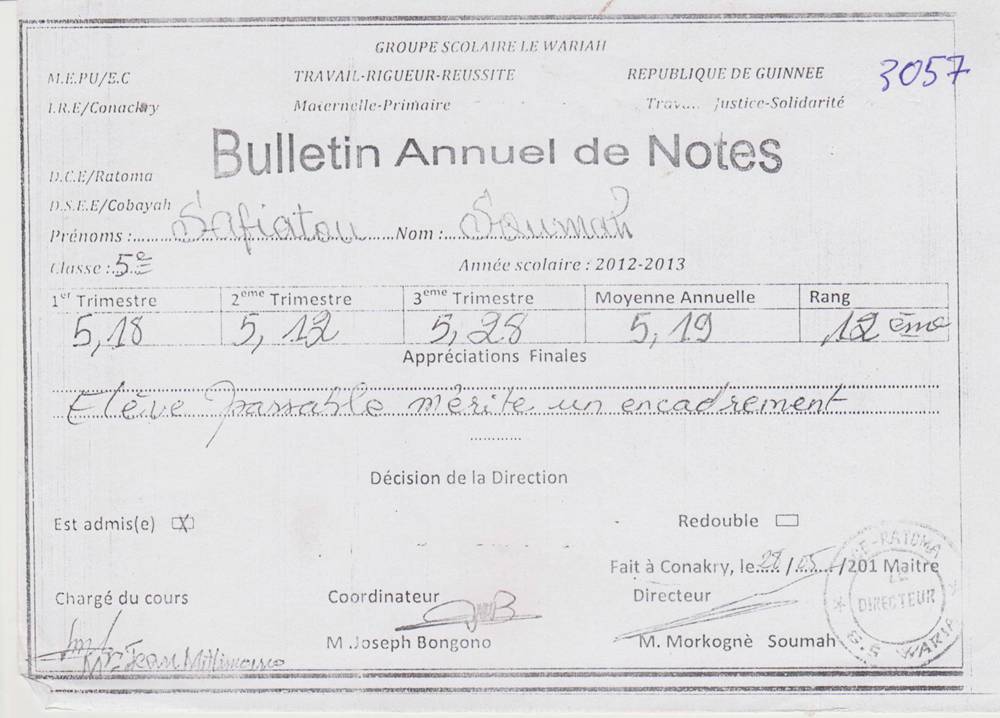 GROUPE SCOLAIRE LE WARIAH
M.E.PU/E.C TRAVAIL-RIGUEUR-REUSSITE REPUBLIQUE DE GUINNEE 3057
I.R.E/Conackry Maternelle-Primaire Justice-Solidarité
Bulletin Annuel de Notes
D.C.E/Ratoma
D.S.E.E/Cobayah
Prénoms : Safiatou Nom : Soumah
Classe : 5e Année scolaire : 2012-2013
1er Trimestre 2eme Trimestre 3eme Trimestre Moyenne Annuelle Rang
5,18 5,12 5,28 5,19 12 ème
Appréciations Finales
Elève passable mérite un encadrement
Décision de la Direction
Est admis(e) X Redouble
Fait à Conakry, le 28/05/201 Maitre
Chargé du cours Coordinateur Directeur
M.Joseph Bongono M. Morkognè Soumah
Mr Jean Millimouno
RATOMA
LE
DIRECTEUR
G.S WARIA